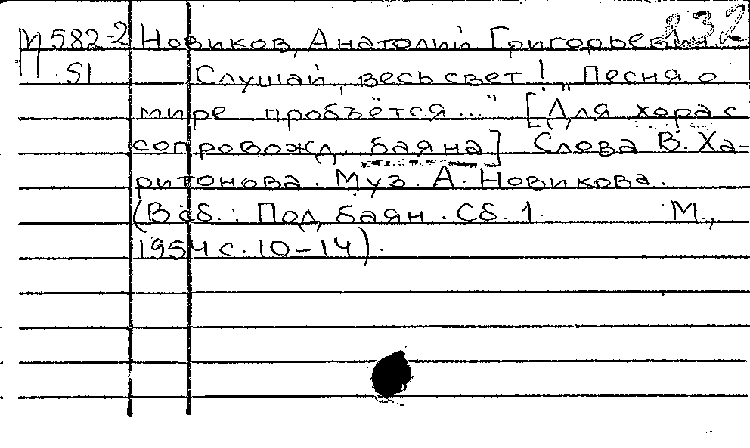 232
М582-2 Новиков, Анатолий Григорьевич
51 Слушай, весь свет! „Песня о
мире пробьётся..." [Для хора с
сопровожд. баяна] Слова В. Ха-
ритонова. Муз. А. Новикова.
(В сб.: Под баян. Сб. 1. М.,
1954 с. 10-14).